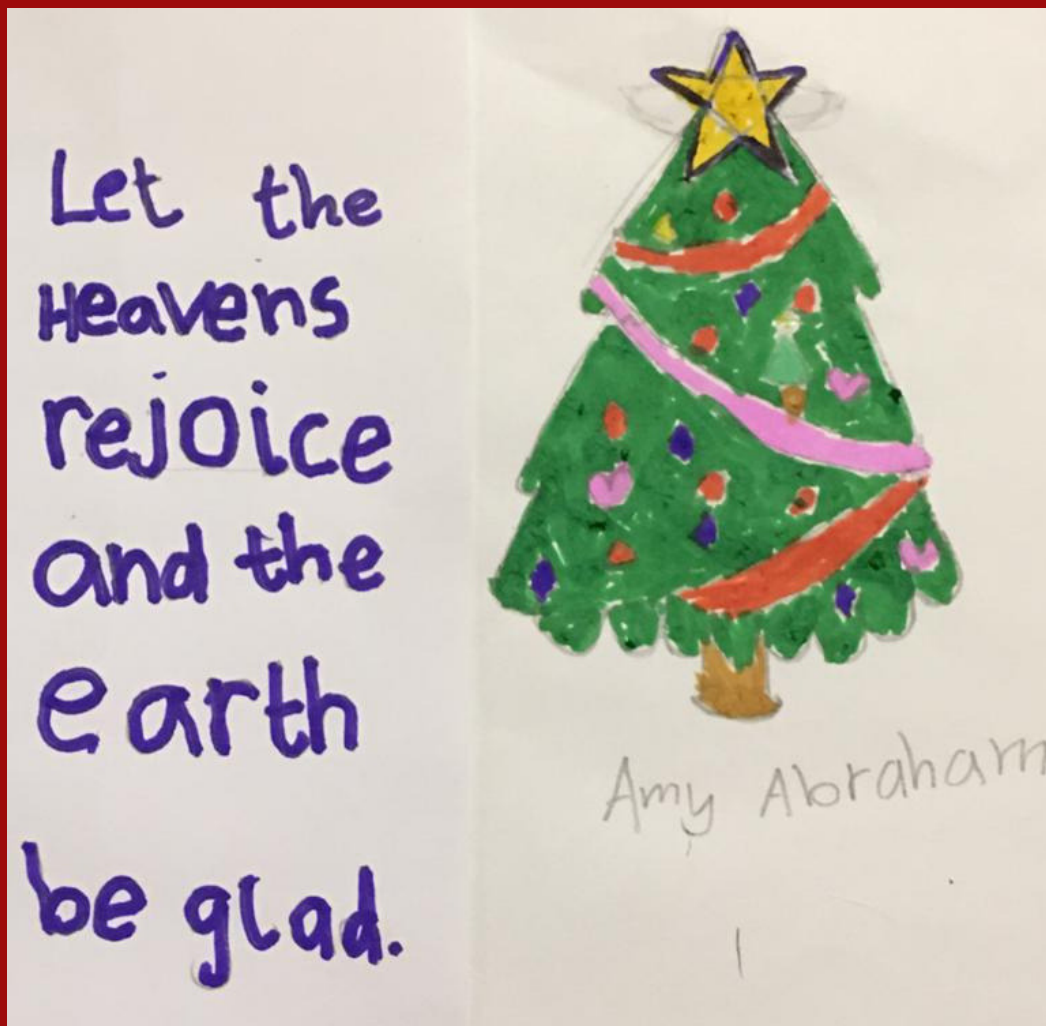 Let the
Heavens
rejoice
and the
earth
be glad.
Amy Abraham